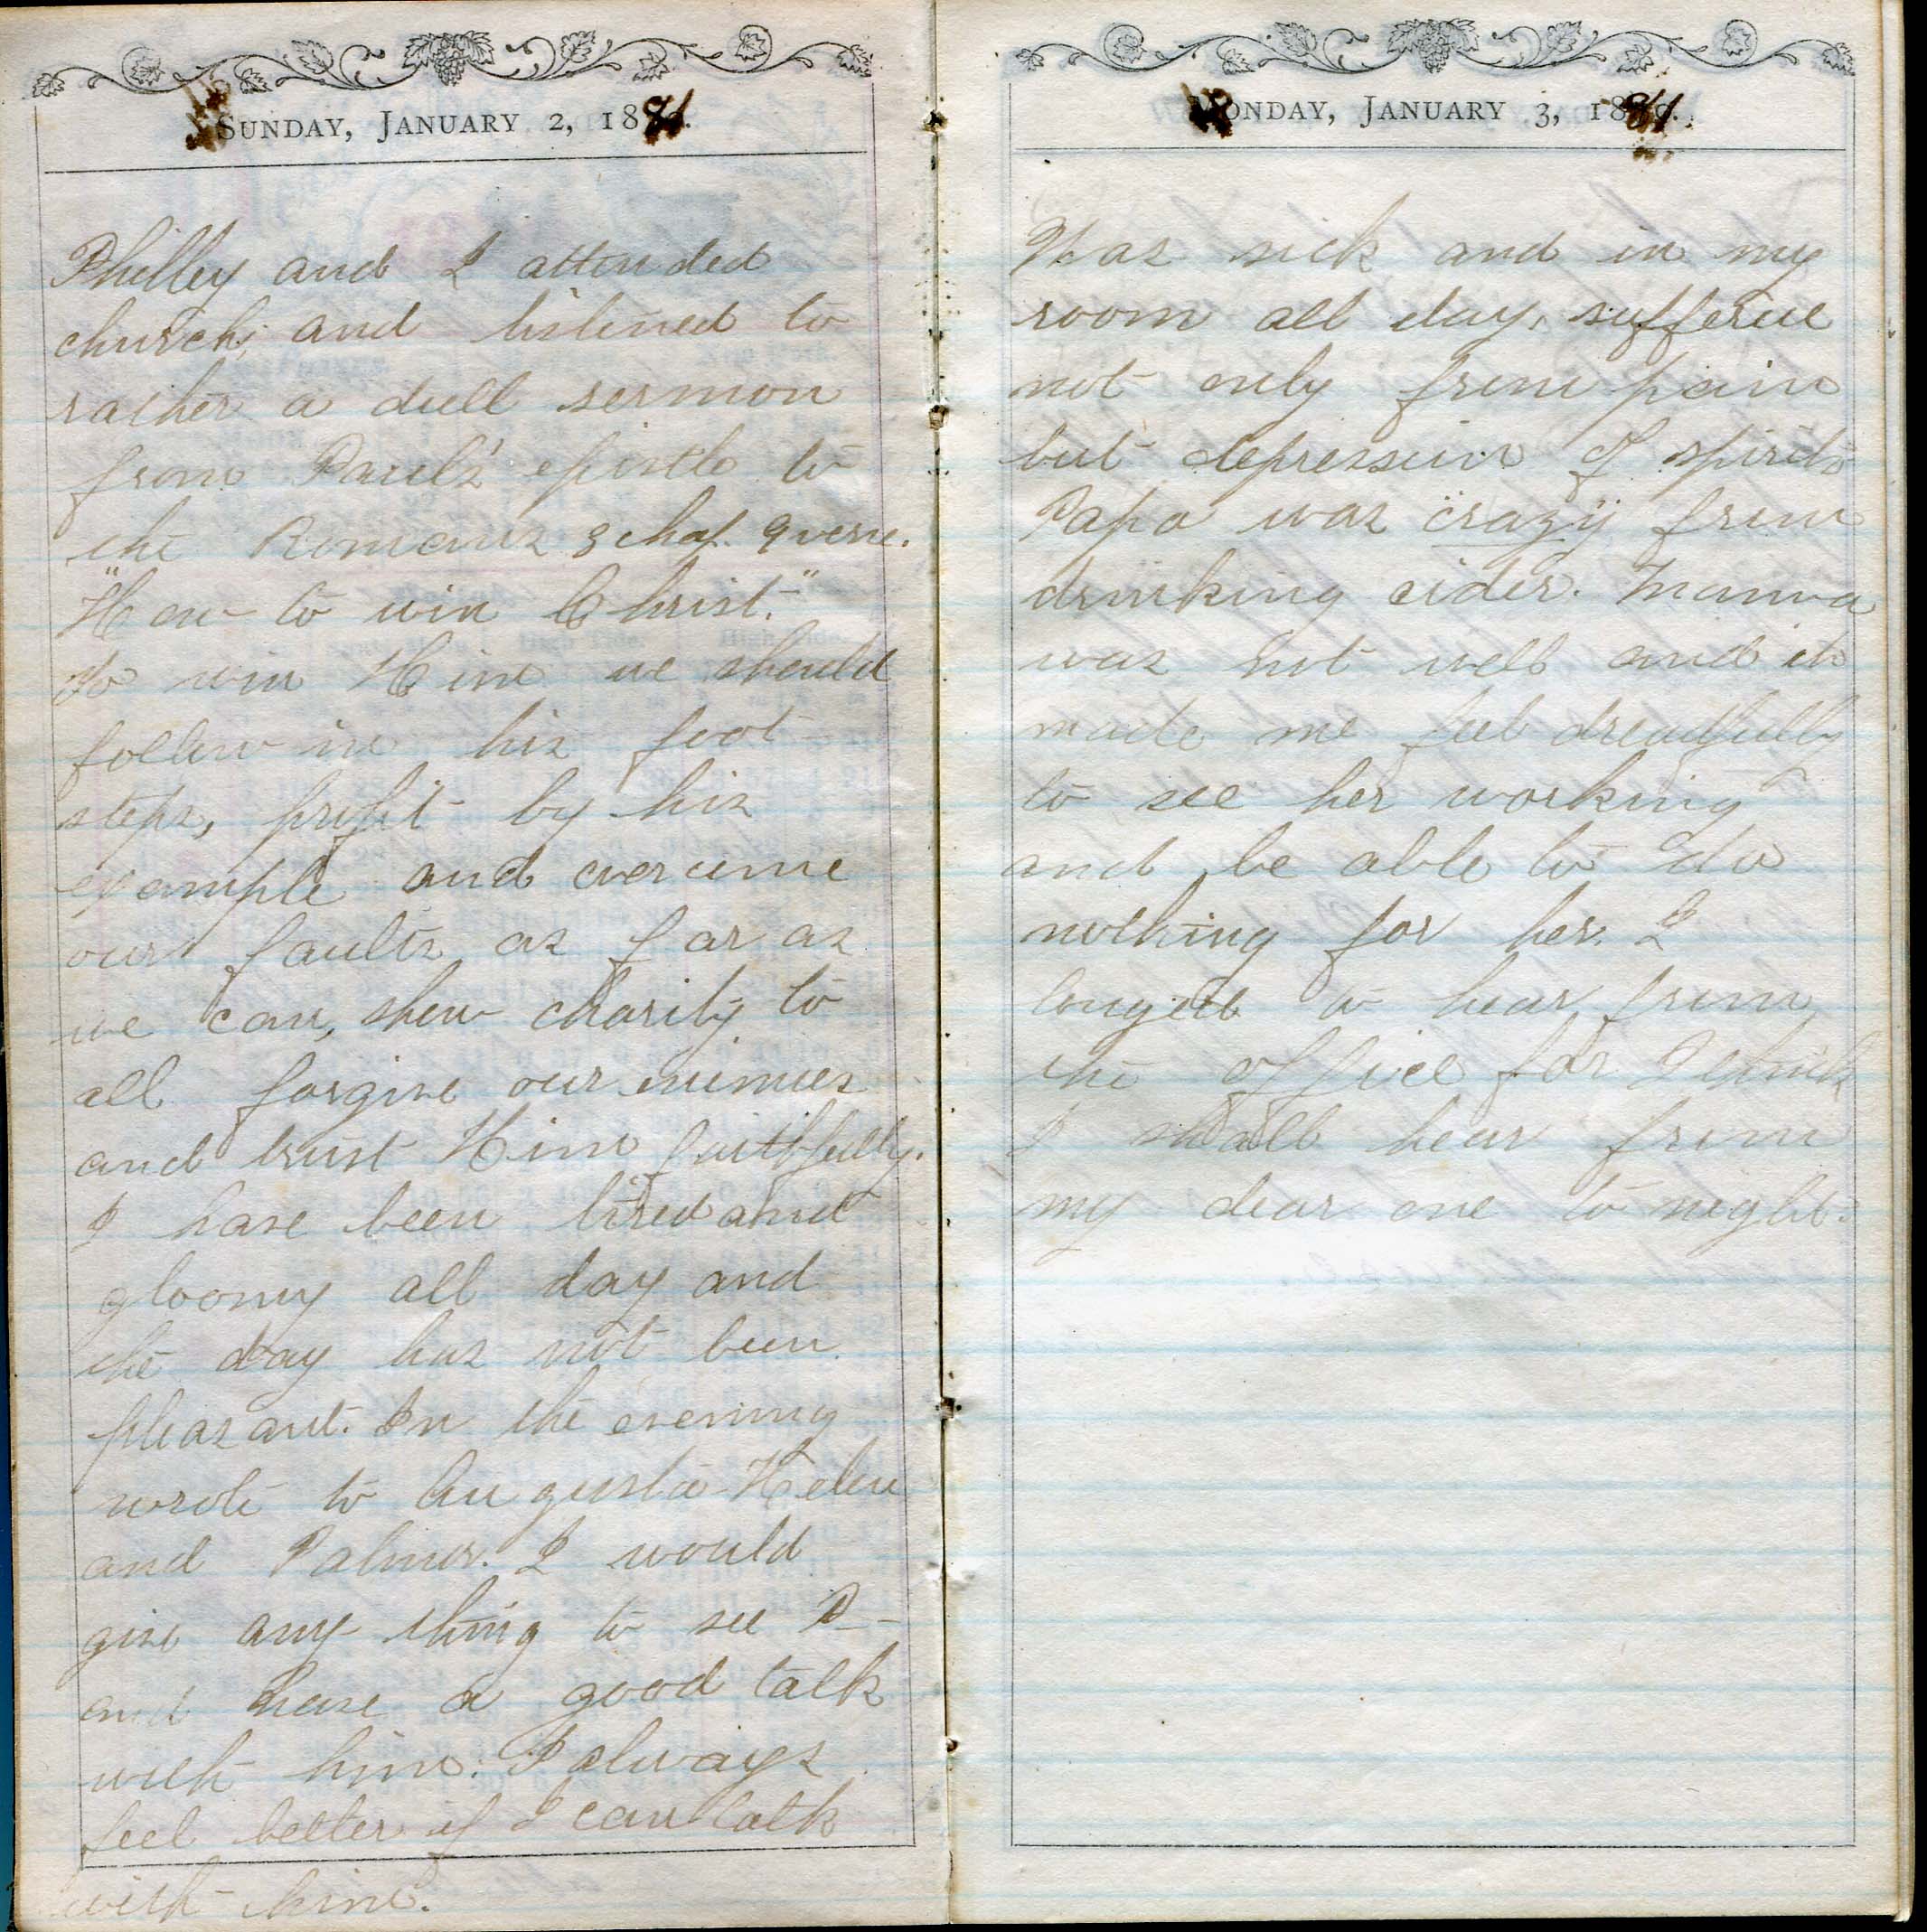 SUNDAY, JANUARY 2, 1881.
Philley and I attended
church, and listened to
rather a dull sermon
from Paul's epistle to
the Romans 3 chap. 9 verse.
"How to win Christ."
To win Him we should
follow in his foot
steps, profit by his
example and overcome
our faults as far as
we can, show charity to
all forgive our enimies
and trust Him faithfully.
I have been tired and
gloomy all day and
the day has not been
pleasant. In the evening
wrote to Augusta Helen
and Palmer. I would
give any thing to see P—
and have a good talk
with him. I always
feel better if I can talk
with him.
MONDAY, JANUARY 3, 1881.
Was sick and in my
room all day, suffered
not only from pain
but depression of spirits
Papa was "crazy" from
drinking cider. Mamma
was not well and it
made me feel dreadfully
to see her working
and be able to do
nothing for her. I
longed to hear from
the office for I think
I shall hear from
my dear one to night.